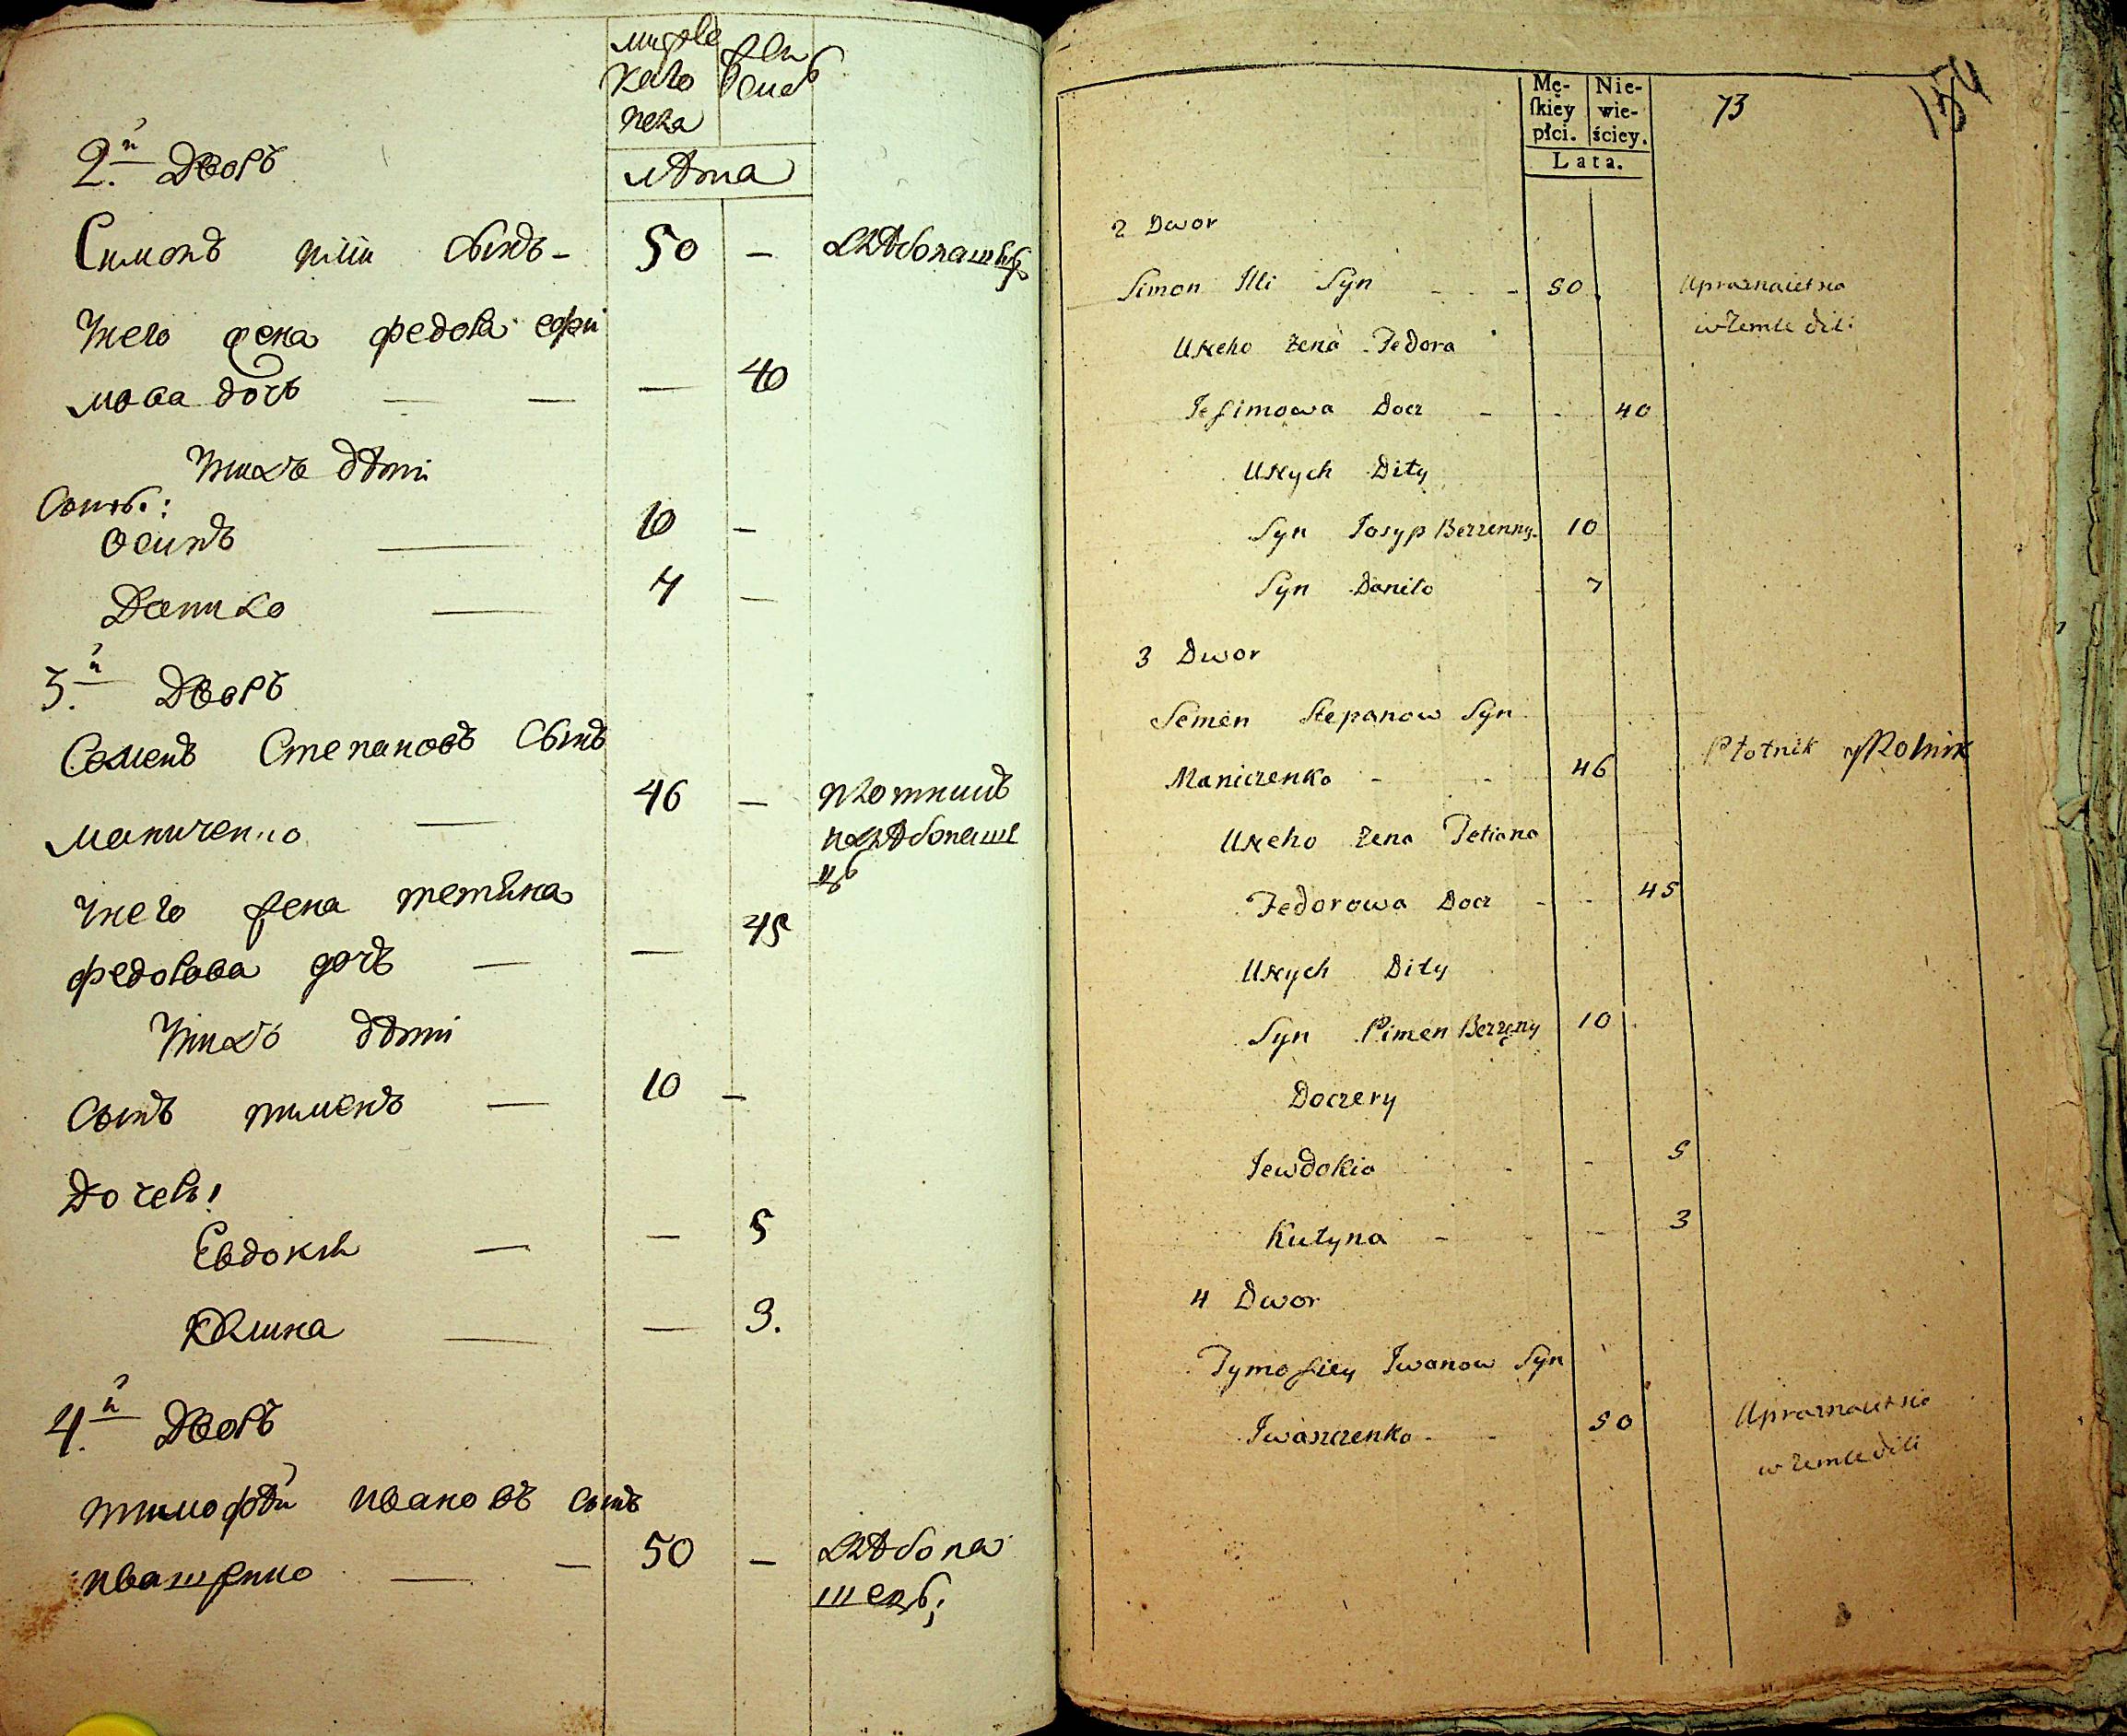 мужеска го пола
жен скаго
лѣта
2.й Дворъ
Симонъ иліи сынъ - 50 — хлѣбопашецъ
У него жена федора ефи
мова дочь — — — 40
У нихъ дѣти
Сынов.:
Осипъ — 10 —
Данило — 7 —
3.й Дворъ
Семенъ Степановъ Сынъ
маниченко — 46 — плотникъ
и хлѣбопаше
цъ
У него жена тетяна
федорова дочь — — 45
У нихъ дѣти
Сынъ пименъ — 10 —
Дочери
Евдокия — — 5
— — 3.
4.й Дворъ
тимофѣй ивановъ сынъ
иващенко — — 50 — хлѣбопа
шецъ;
Mę-
ſkiey
płci.
Nie-
wie-
ściey.
Lata.
73
2 Dwor
Simon Illi Syn - - - 50 Uprażnaietsia
w Zemle dili
U Neho żena Fedora
Jefimowa Docz - - 40
U Nych Dity
Syn Josyp Bezzenny. 10
Syn Daniło - 7
3 Dwor
Semen Stepanow Syn
Maniczenko - - 46 Płotnik y Rolnik
U Neho żena Tetiana
Fedorowa Docz - - 45
U Nych Dity
Syn Pimen Bezzeny 10
Doczery
Jewdokia - - 5
Kułyna - - - 3
4 Dwor
Tymofiey Iwanow Syn
Iwaszczenko - - 50 Uprażnaietsia
w Zemle dili